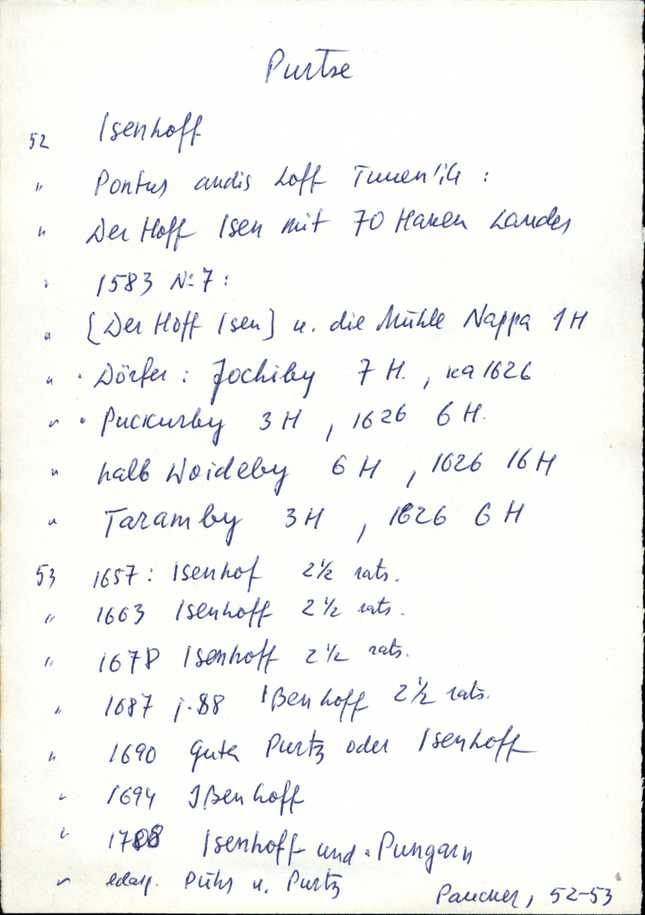 Purtse
52 Isenhoff
" Pontus andis Loff Tuuen'ile :
" Der Hoff Isen mit 70 Haken Landes
" 1583 N:7 :
" [Der Hoff Isen] u. die Mühle Nappa 1 H
" · Dörfer : Jochiby 7 H. , ka 1626
" · Puckurby 3 H , 1626 6 H.
" halb Woideby 6 H , 1626 16 H
" Taramby 3 H , 1626 6 H
53 1657 : Isenhof 2 1/2 rats.
" 1663 Isenhoff 2 1/2 rats.
" 1678 Isenhoff 2 1/2 rats.
" 1687 j. 88 Ißenhoff 2 1/2 rats.
" 1690 Guth Purtz oder Isenhoff
" 1694 Ißenhoff
" Isenhoff und Pungern
" edasp. Pühs u. Purtz
Paucker, 52-53